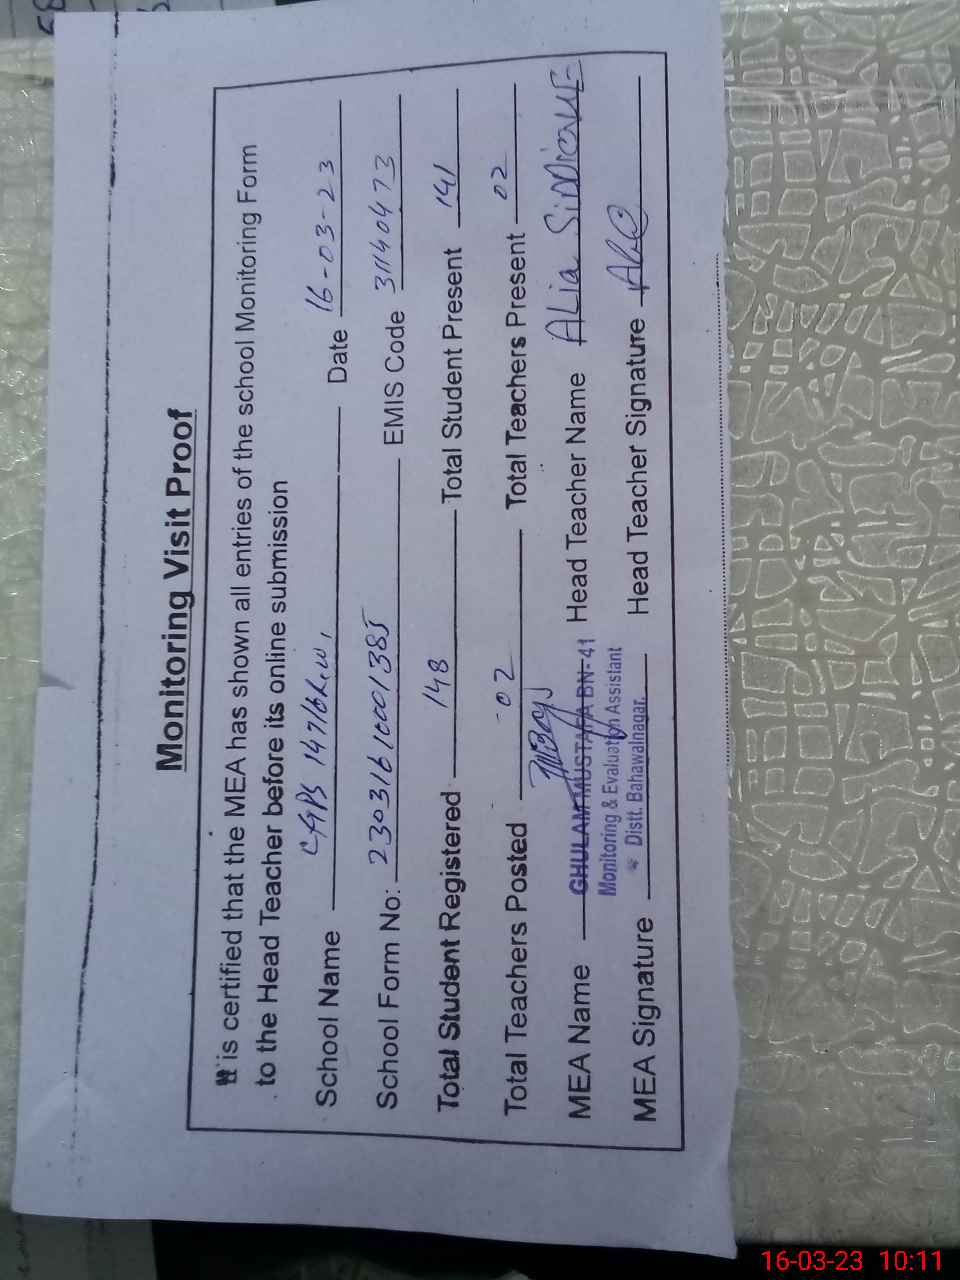 Monitoring Visit Proof
It is certified that the MEA has shown all entries of the school Monitoring Form
to the Head Teacher before its online submission
School Name GGPS 147/6R.W. Date 16-03-23
School Form No: 230316100001385 EMIS Code 31140473
Total Student Registered 148 Total Student Present 141
Total Teachers Posted 02 Total Teachers Present 02
MEA Name GHULAM MUSTAFA BN-41 Head Teacher Name ALia SiDDiQUE
Monitoring & Evaluation Assistant
Distt. Bahawalnagar.
MEA Signature Head Teacher Signature
16-03-23 10:11